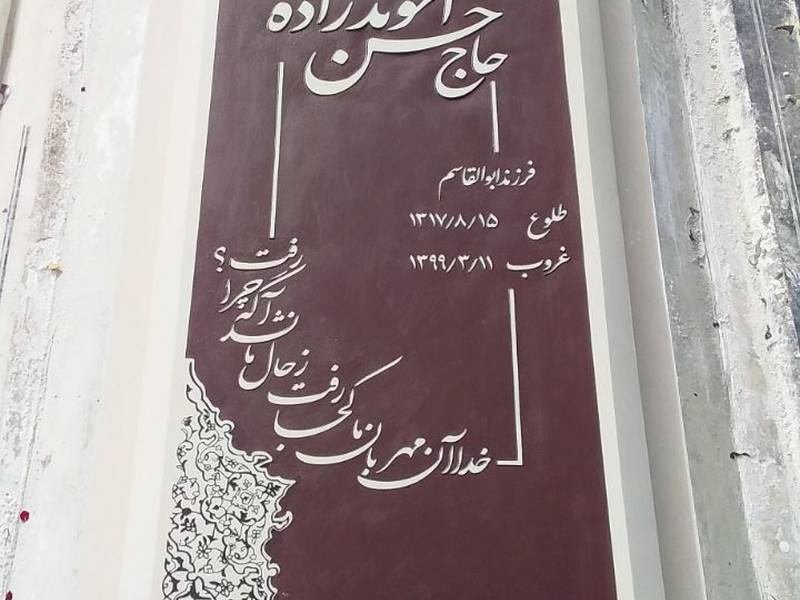 حاج حسن آخوندزاده
فرزند ابوالقاسم
طلوع ۱۳۱۷/۸/۱۵
غروب ۱۳۹۹/۳/۱۱
خدا آن مهربان ما کجا رفت
ز حال ما نشد آگه چرا رفت ؟